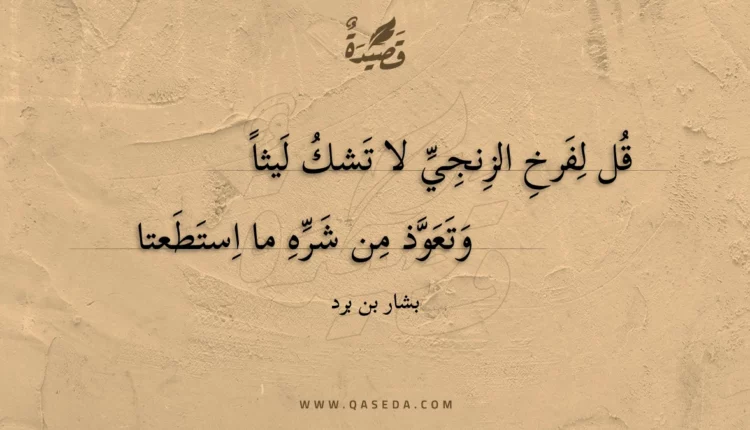 قَصِيْدَةٌ
قُل لِفَرخِ الزِنجِيِّ لا تَشكُ لَيثاً
وَتَعَوَّذ مِن شَرِّهِ ما اِستَطَعتا
بشار بن برد
WWW.QASEDA.COM